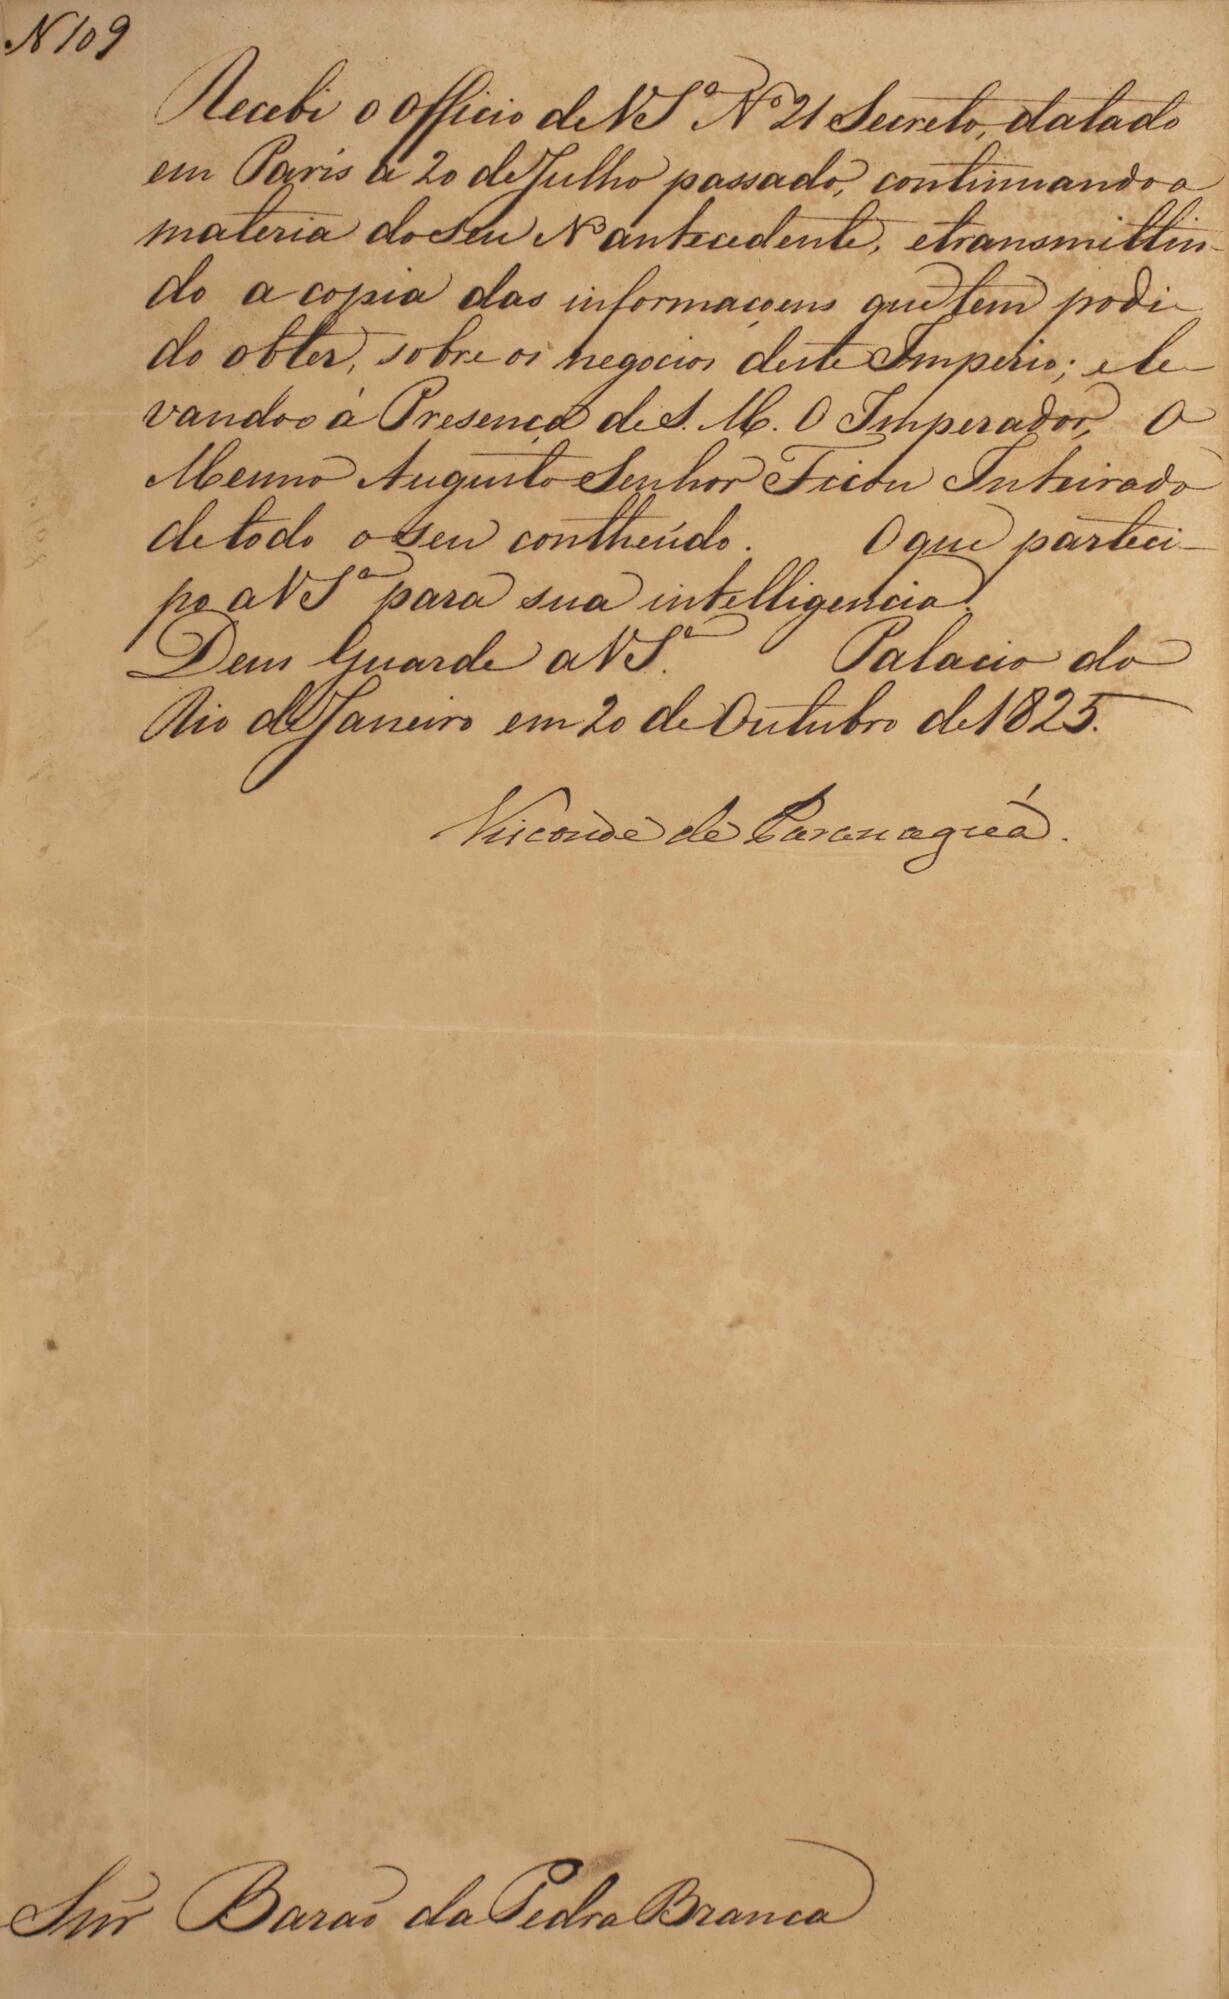 N 109
Recebi o officio de V Sª Nº 21 Secreto, datado
em Paris a 20 de Julho passado, continuando a
materia do seu Nº antecedente, e transmittin-
do a copia das informaçoens que tem podi-
do obter, sobre os negocios deste Imperio; e le-
vando o á Presença de S. M. O Imperador, O
Mesmo Augusto Senhor Ficou Inteirado
de todo o seu contheúdo. O que partici-
po a V Sª para sua intelligencia.
Deus Guarde a V Sª. Palacio do
Rio de Janeiro em 20 de Outubro de 1825.
Visconde de Paranaguá.
Snr Barão da Pedra Branca